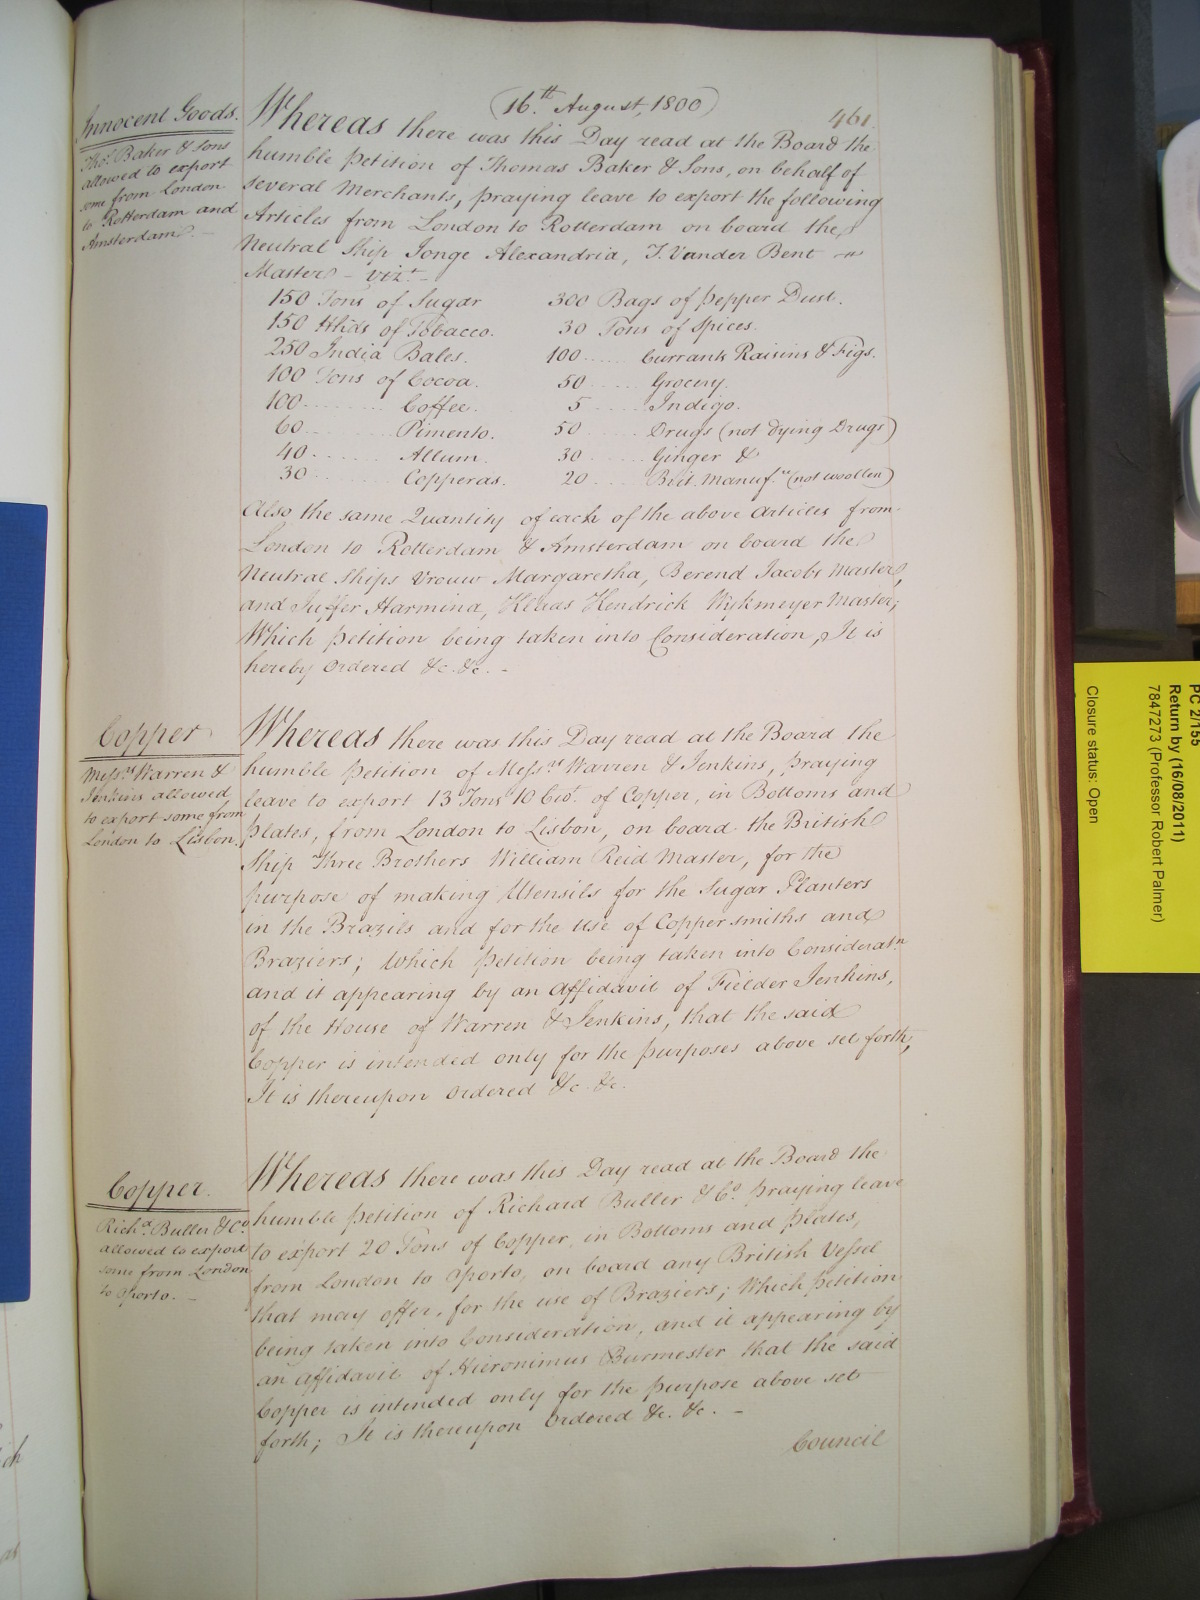 (16.th August, 1800)
461.
Innocent Goods.
Thos. Baker & Sons
allowed to export
some from London
to Rotterdam and
Amsterdam. -
Whereas there was this Day read at the Board the
humble Petition of Thomas Baker & Sons, on behalf of
several Merchants, praying leave to export the following
Articles from London to Rotterdam on board the
Neutral Ship Jonge Alexandria, T. Vander Bent
Master - Vizt. -
150 Tons of Sugar 300 Bags of Pepper Dust.
150 Hhds of Tobacco. 30 Tons of Spices.
250 India Bales. 100 .... Currants Raisins & Figs.
100 Tons of Cocoa. 50 .... Grocery.
100 ........ Coffee. 5 .... Indigo.
60 ........ Pimento. 50 .... Drugs (not dying Drugs)
40 ........ Allum. 30 .... Ginger &
30 ........ Copperas. 20 .... Brit. Manufrs. (not woollen)
Also the same Quantity of each of the above Articles from
London to Rotterdam & Amsterdam on board the
Neutral Ships Vrouw Margaretha, Berend Jacobs Master,
and Juffer Harmina, Klaas Hendrick Wykmeyer Master;
Which Petition being taken into Consideration, It is
hereby Ordered &c. &c. -
Copper
Messrs. Warren &
Jenkins allowed
to export some from
London to Lisbon.
Whereas there was this Day read at the Board the
humble Petition of Messrs. Warren & Jenkins, praying
leave to export 13 Tons 10 Cwt. of Copper, in Bottoms and
Plates, from London to Lisbon, on board the British
Ship Three Brothers William Reid Master, for the
purpose of making Utensils for the Sugar Planters
in the Brazils and for the use of Coppersmiths and
Braziers; Which Petition being taken into Considerasn
and it appearing by an Affidavit of Fielder Jenkins,
of the House of Warren & Jenkins, that the said
Copper is intended only for the purposes above set forth,
It is thereupon Ordered &c. &c.
Copper.
Richd. Buller & Co.
allowed to export
some from London
to Oporto. -
Whereas there was this Day read at the Board the
humble Petition of Richard Buller & Co. praying leave
to export 20 Tons of Copper, in Bottoms and Plates,
from London to Oporto, on board any British Vessel
that may offer, for the use of Braziers; Which Petition
being taken into Consideration, and it appearing by
an Affidavit of Hieronimus Burmester that the said
Copper is intended only for the purpose above set
forth; It is thereupon Ordered &c. &c. -
Council
PC 2/155
Return by (16/08/2011)
7847273 (Professor Robert Palmer)
Closure status: Open